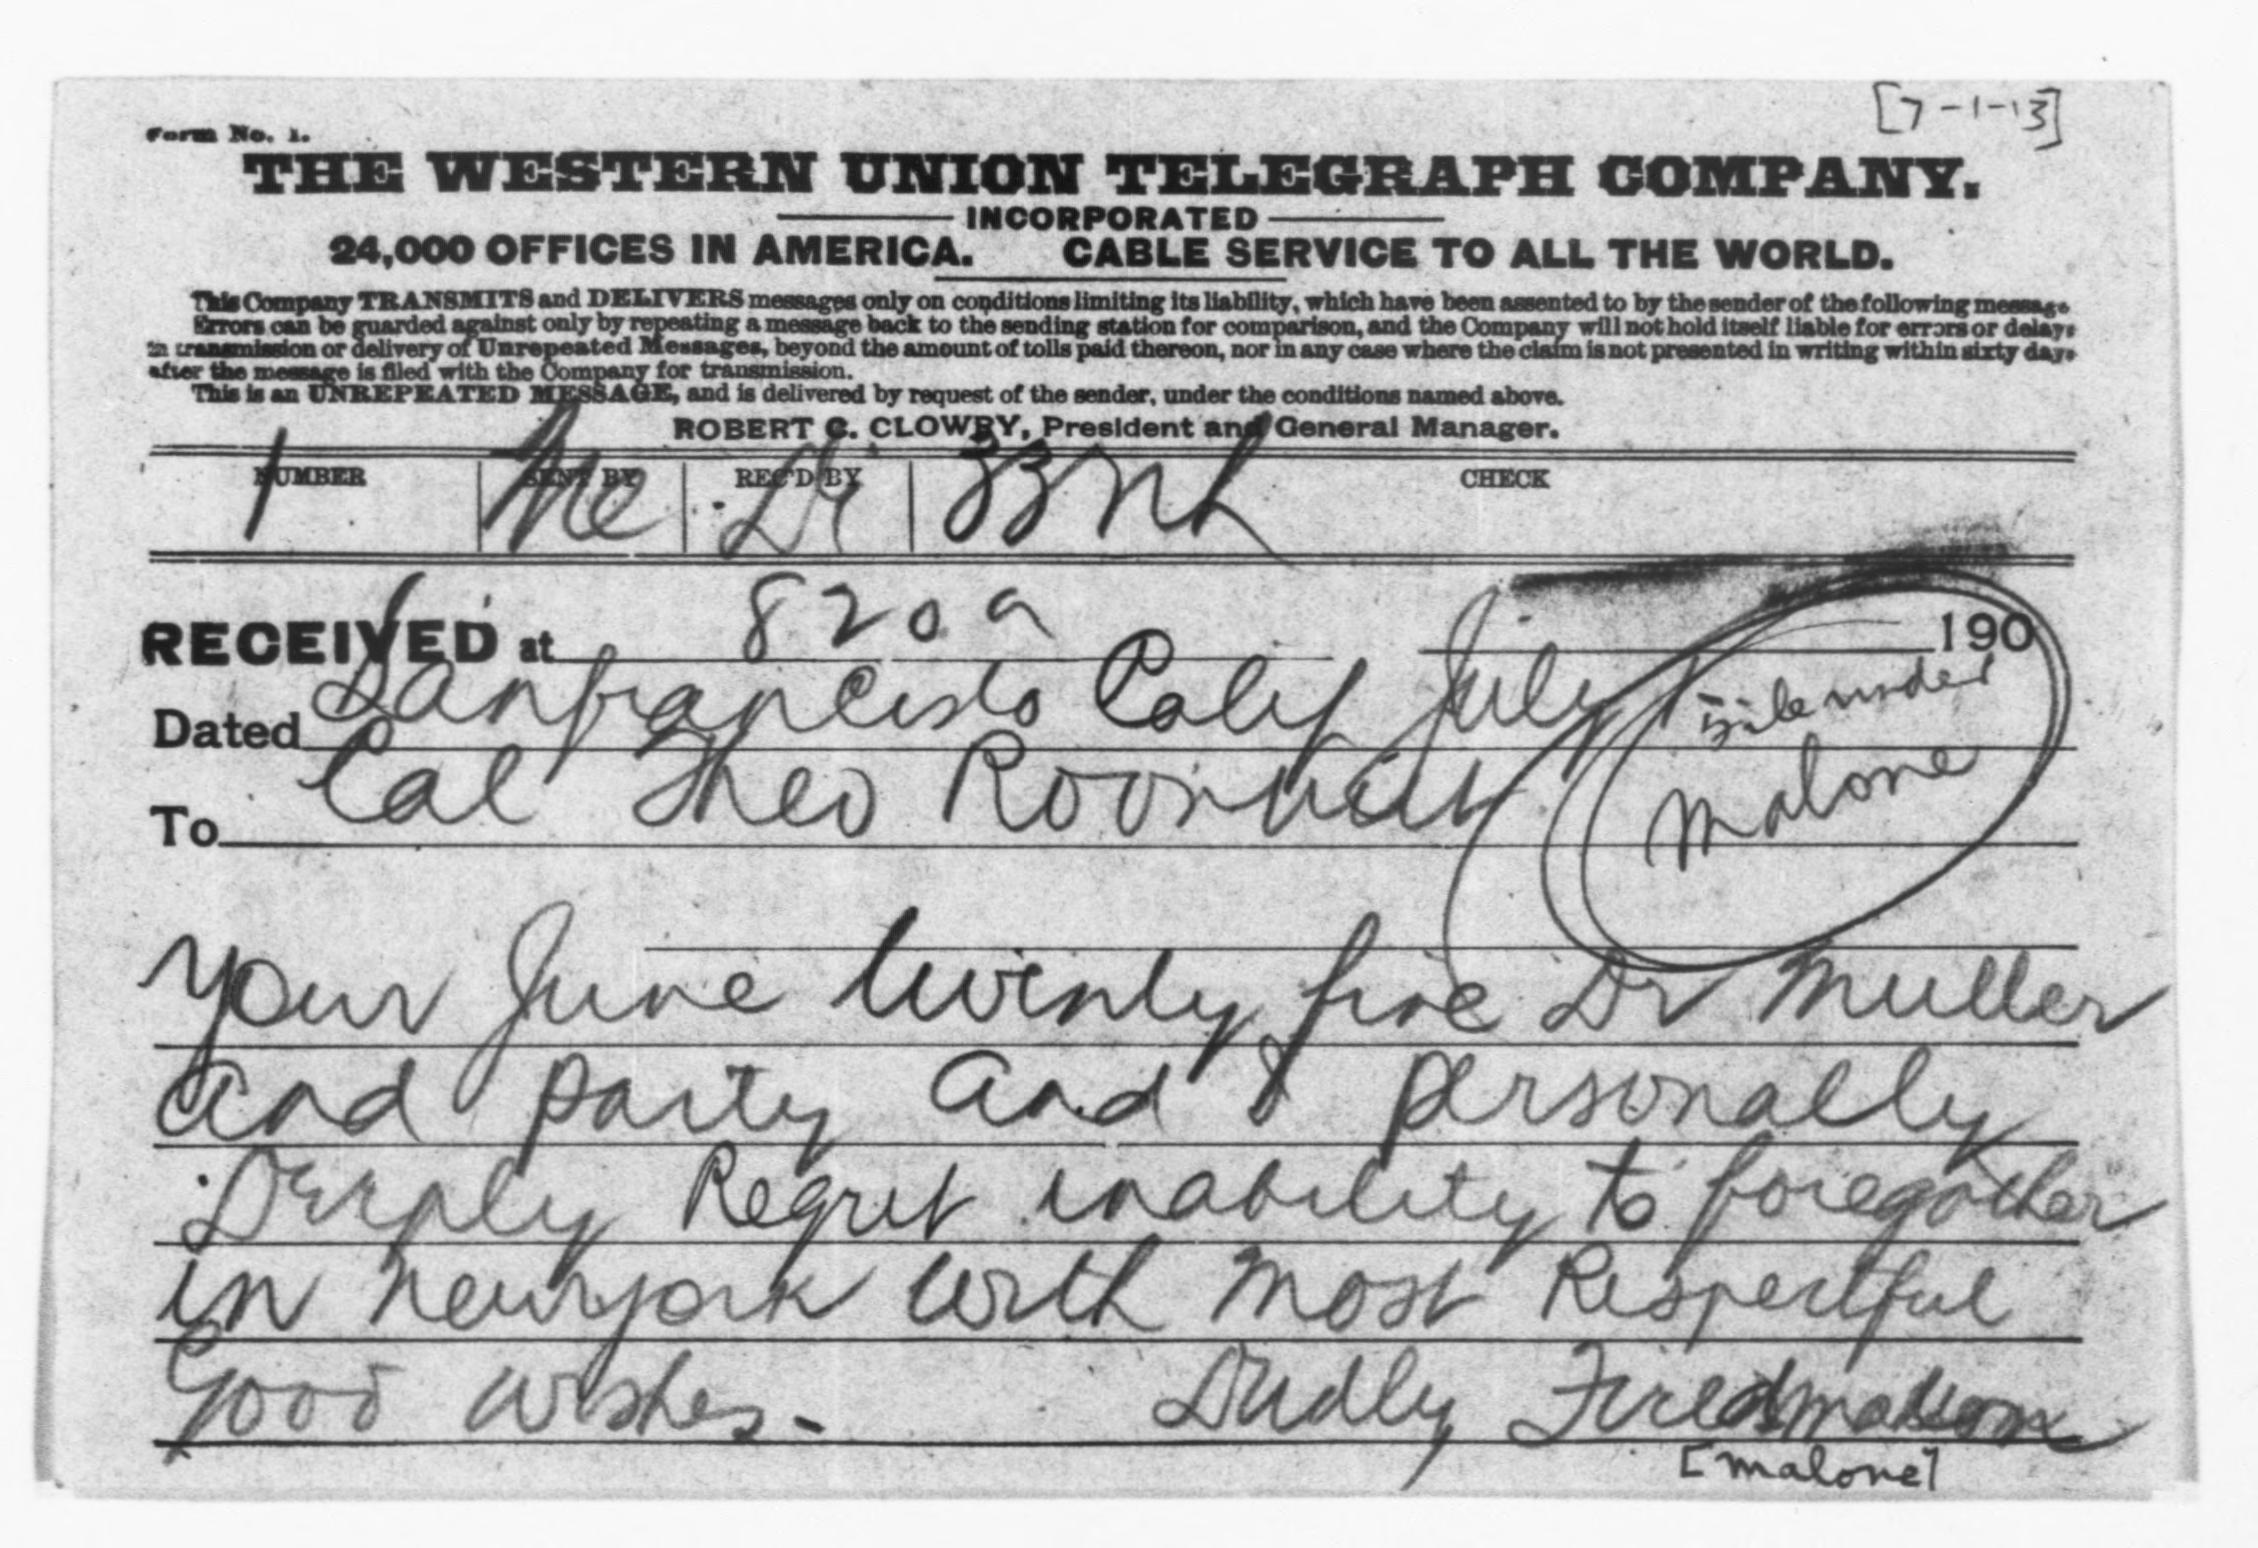 [7-1-13]
Form No. 1.
THE WESTERN UNION TELEGRAPH COMPANY.
INCORPORATED
24,000 OFFICES IN AMERICA. CABLE SERVICE TO ALL THE WORLD.
This Company TRANSMITS and DELIVERS messages only on conditions limiting its liability, which have been assented to by the sender of the following message
Errors can be guarded against only by repeating a message back to the sending station for comparison, and the Company will not hold itself liable for errors or delays
in transmission or delivery of Unrepeated Messages, beyond the amount of tolls paid thereon, nor in any case where the claim is not presented in writing within sixty days
after the message is filed with the Company for transmission.
This is an UNREPEATED MESSAGE, and is delivered by request of the sender, under the conditions named above.
ROBERT C. CLOWRY, President and General Manager.
NUMBER SENT BY REC'D BY CHECK
1 Mc 33 NL
RECEIVED at 820a 190
Dated Sanfrancisco Calif July 1
To Col Theo Roosevelt
File under
Malone
Your June twenty five Dr Muller
and party and I personally
Deeply Regret inability to foregather
in Newyork with most Respectful
Good wishes.
Dudly Field
[Malone]